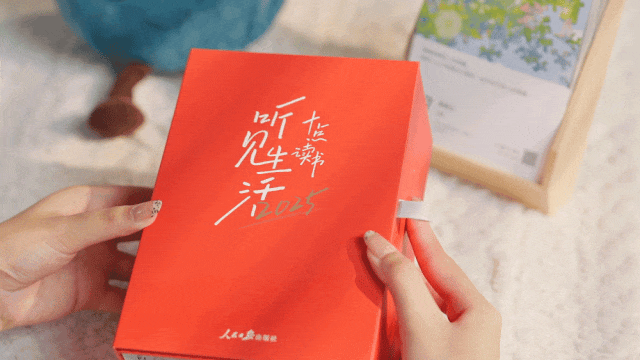 听见生活
十点读书
2025
人民日报出版社